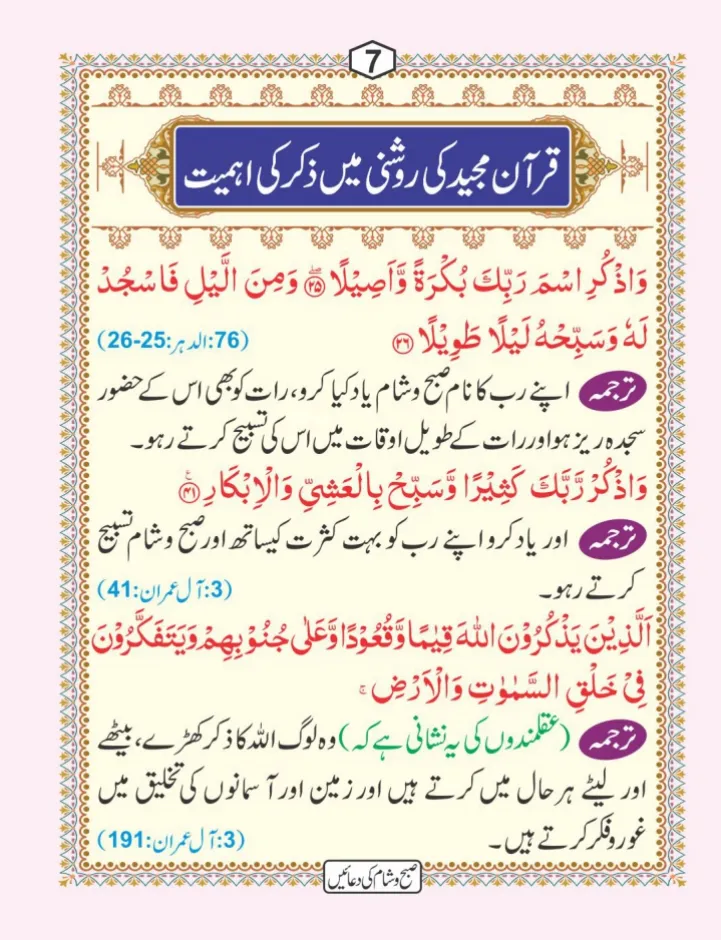 7
قرآن مجید کی روشنی میں ذکر کی اہمیت
وَاذْكُرِ اسْمَ رَبِّكَ بُكْرَةً وَّاَصِيْلًا ۖۚ ﴿۲۵﴾ وَمِنَ الَّيْلِ فَاسْجُدْ
لَهٗ وَسَبِّحْهُ لَيْلًا طَوِيْلًا ﴿۲۶﴾ (76:الدہر:25-26)
ترجمہ اپنے رب کا نام صبح و شام یاد کیا کرو، رات کو بھی اس کے حضور
سجدہ ریز ہو اور رات کے طویل اوقات میں اس کی تسبیح کرتے رہو۔
وَاذْكُرْ رَّبَّكَ كَثِيْرًا وَّسَبِّحْ بِالْعَشِيِّ وَالْاِبْكَارِ ﴿۴۱﴾ۧ
ترجمہ اور یاد کرو اپنے رب کو بہت کثرت کیساتھ اور صبح و شام تسبیح
کرتے رہو۔ (3:آل عمران:41)
اَلَّذِيْنَ يَذْكُرُوْنَ اللّٰهَ قِيٰمًا وَّقُعُوْدًا وَّعَلٰى جُنُوْبِهِمْ وَيَتَفَكَّرُوْنَ
فِيْ خَلْقِ السَّمٰوٰتِ وَالْاَرْضِ ۚ
ترجمہ (عقلمندوں کی یہ نشانی ہے کہ) وہ لوگ اللہ کا ذکر کھڑے، بیٹھے
اور لیٹے ہر حال میں کرتے ہیں اور زمین اور آسمانوں کی تخلیق میں
غور و فکر کرتے ہیں۔ (3:آل عمران:191)
صبح و شام کی دعائیں